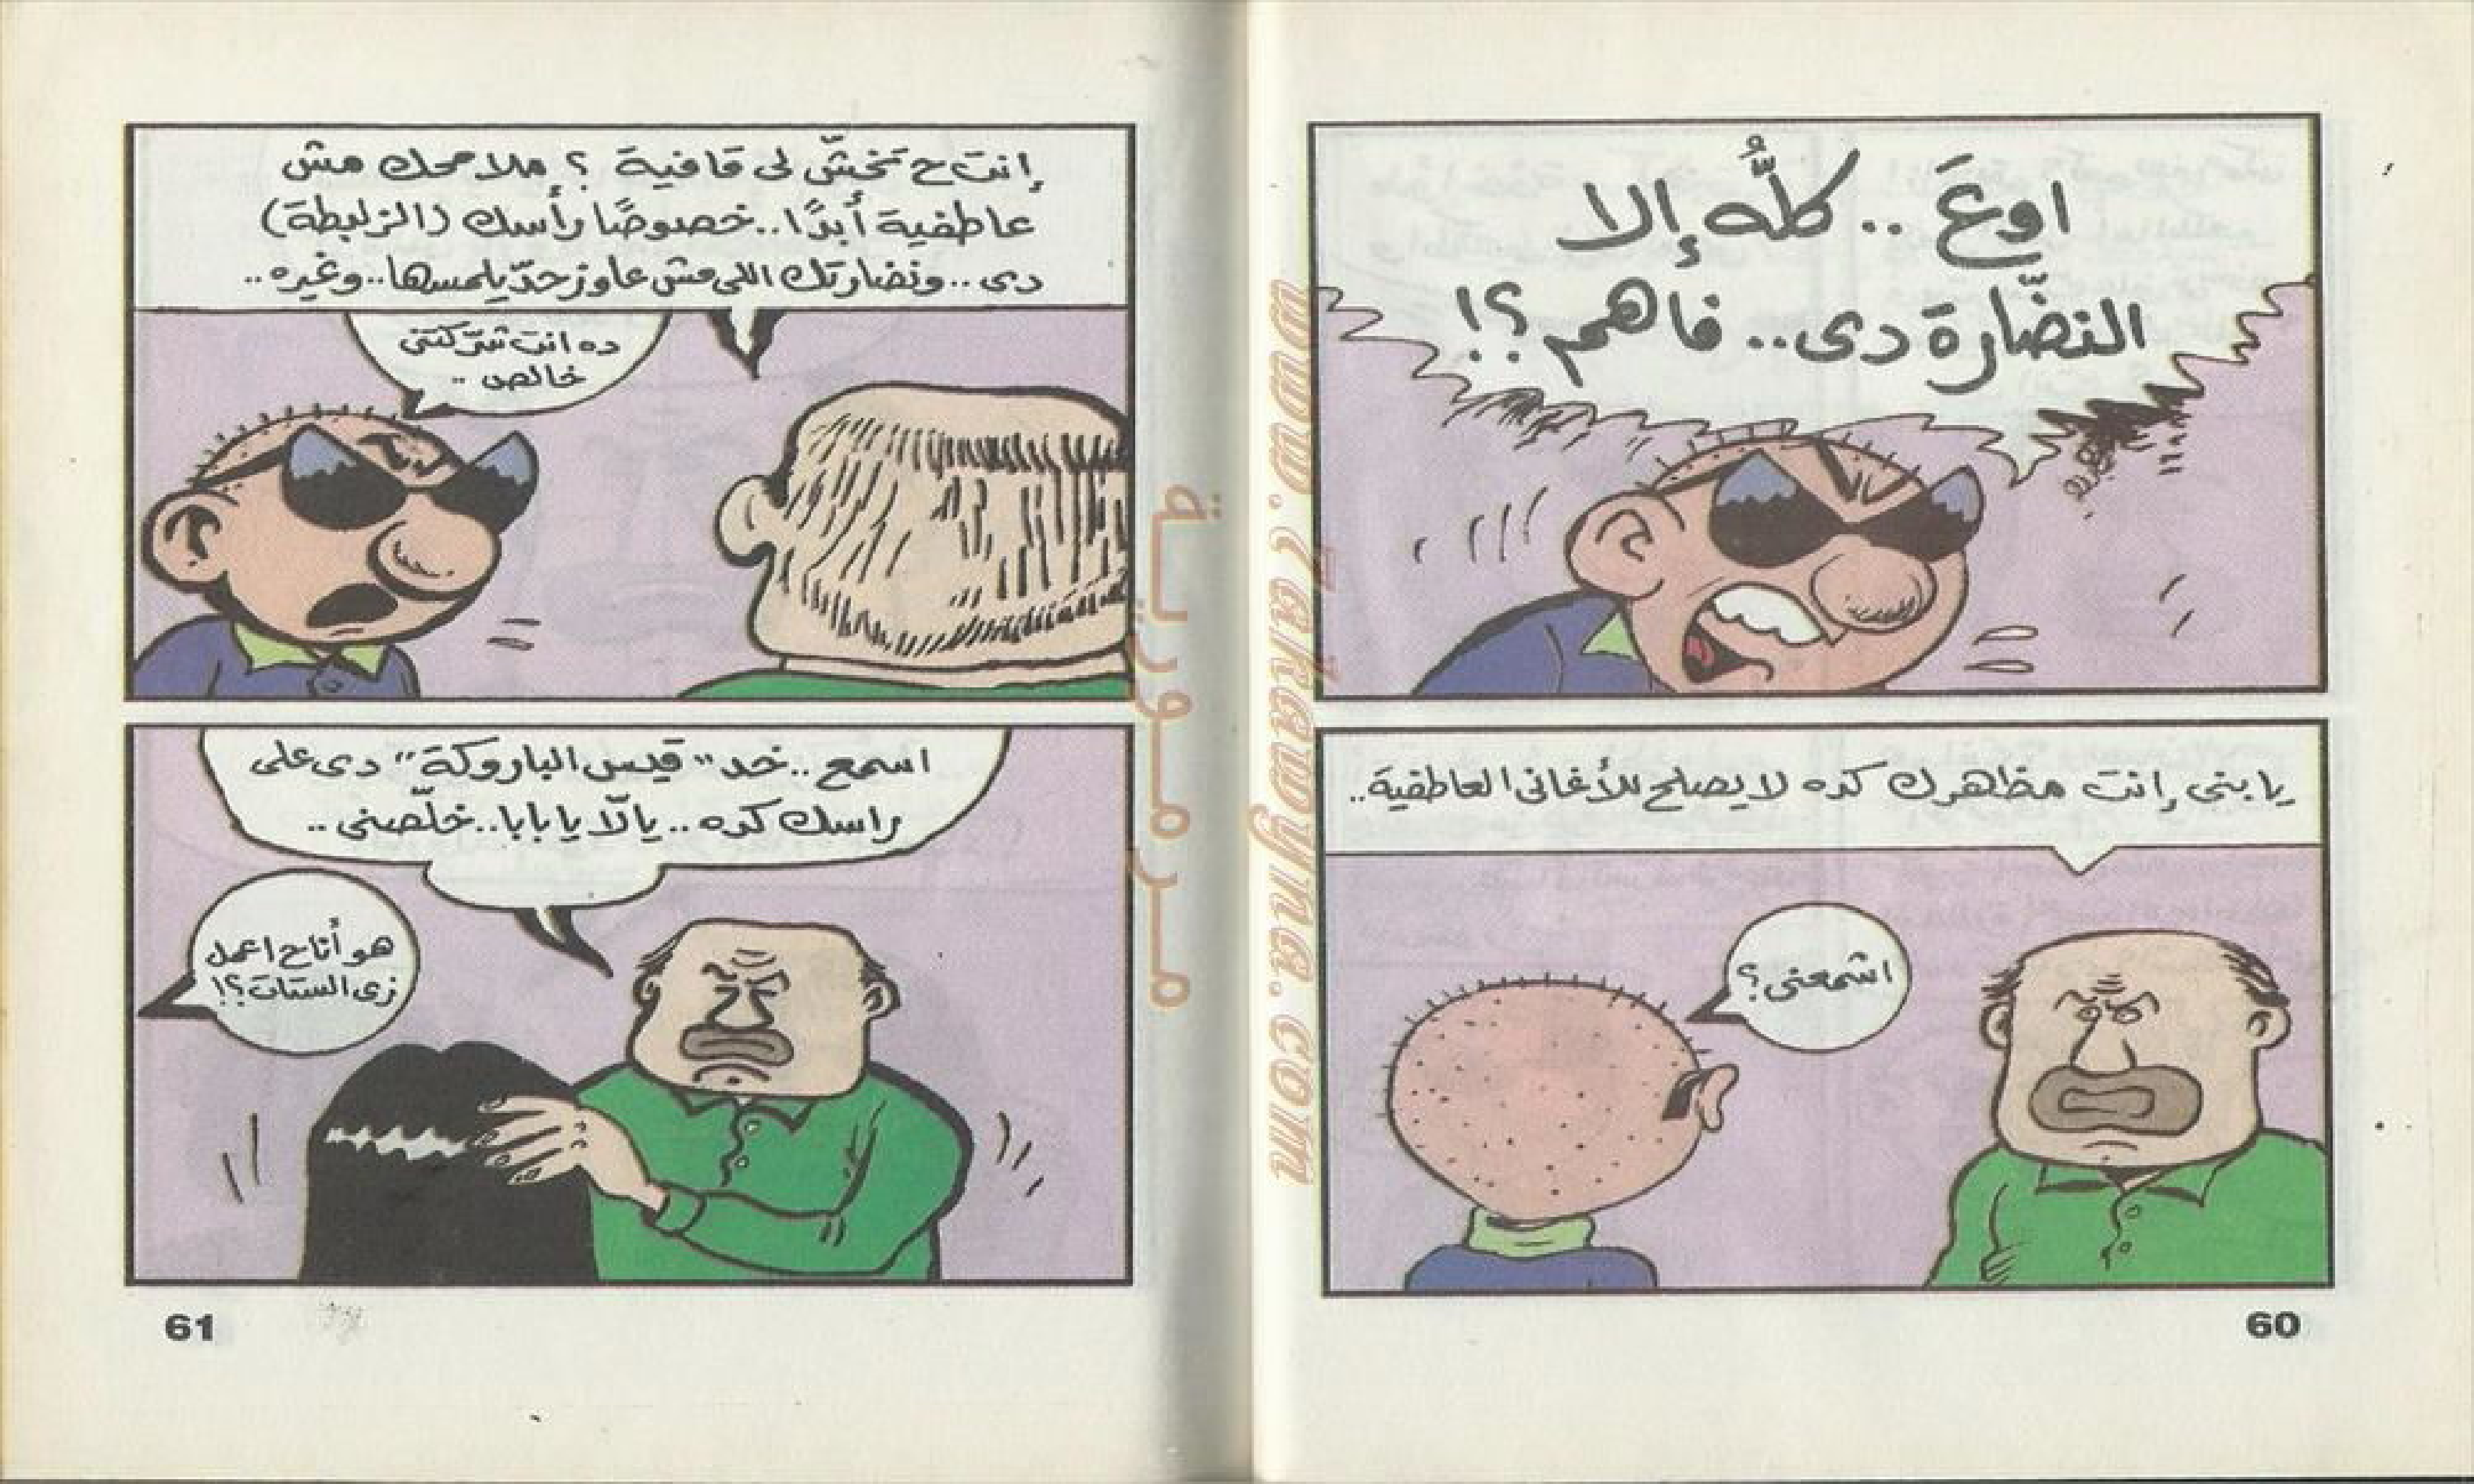 اوعَ .. كلُّه إلا
النضّارة دى .. فاهم؟!
يا بنى إنت مظهرك كده لا يصلح للأغانى العاطفية ..
اشمعنى؟
60
إنت ح تخشّ لى قافية ؟ ملامحك مش
عاطفية أبدًا .. خصوصًا رأسك (الزلبطة)
دى .. ونضارتك اللى مش عاوز حدّ يلمسها .. وغيره ..
ده انت شرّكتنى
خالص ..
اسمع .. خد "قيس الباروكة" دى على
راسك كده .. يالّا يا بابا .. خلّصنى ..
هو أنا ح اعمل
زى الستات؟!
61
مرمورية
www.Zakawyna.com